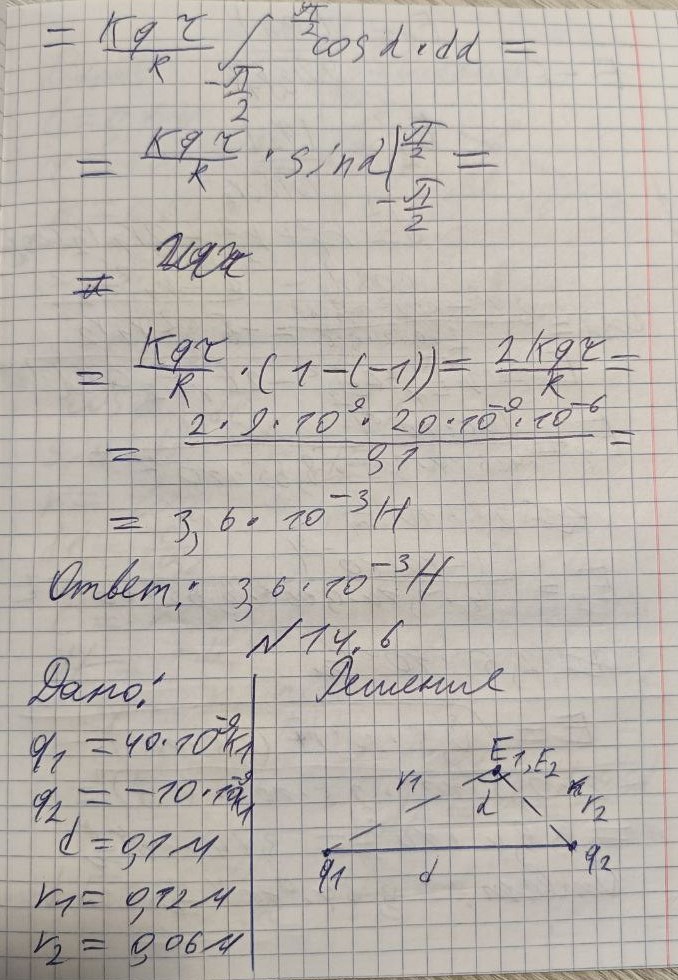 = Kqτ/R ∫_{-π/2}^{π/2} cosα·dα =
= Kqτ/R · sinα |_{-π/2}^{π/2} =
=
= Kqτ/R · (1-(-1)) = 2Kqτ/R =
= 2·9·10⁹·20·10⁻⁹·10⁻⁶/0,1 =
= 3,6·10⁻³Н
Ответ: 3,6·10⁻³Н
№14.6
Дано: Решение
q1 = 40·10⁻⁹Кл
q2 = -10·10⁻⁹Кл
d = 0,1м
r1 = 0,12м
r2 = 0,06м
E1, E2
r1
α
r2
q1
d
q2